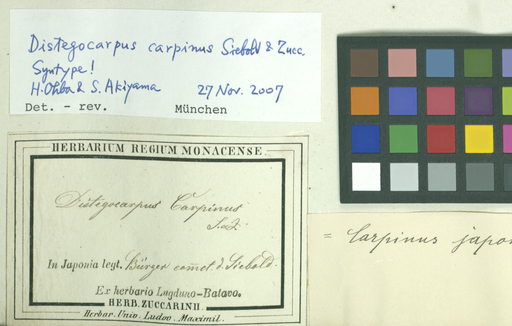 Distegocarpus carpinus Siebold & Zucc.
Syntype!
H. Ohba & S. Akiyama 27 Nov. 2007
Det. - rev. München
HERBARIUM REGIUM MONACENSE.
Distegocarpus Carpinus
S. & Z.
In Japonia legt. Bürger comēt d. Siebold.
Ex herbario Lugduno-Batavo.
HERB. ZUCCARINII
Herbar. Univ. Ludov. Maximil.
= Carpinus japon